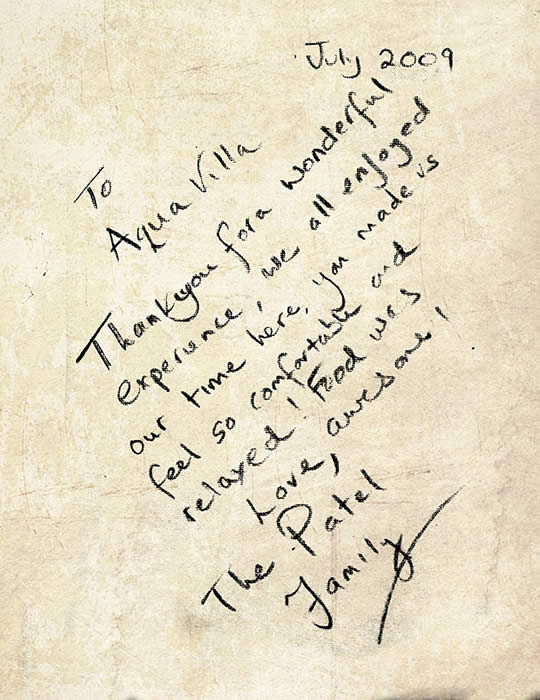 July 2009
To
Aqua Villa
Thankyou for a wonderful
experience, we all enjoyed
our time here, you made us
feel so comfortable and
relaxed! Food was
awesome!
Love,
The Patel
Family